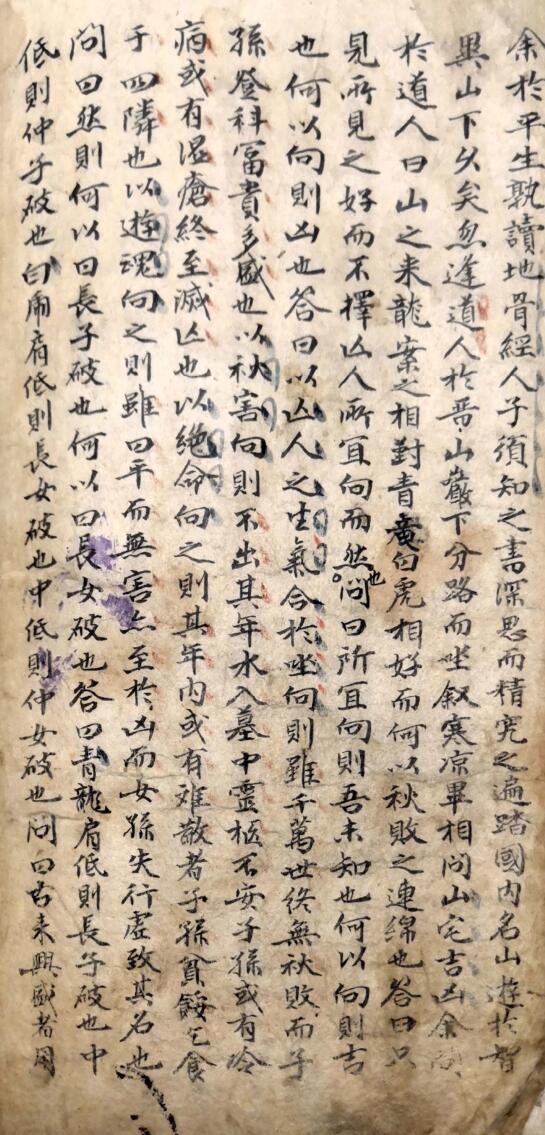 余於平生孰讀地骨經人子須知之書深思而精究之遍踏國內名山遊於智
異山下久矣忽逢道人於晋山巖下分路而坐叙寒凉畢相問山宅吉凶余問
於道人曰山之来龍案之相對青竜白虎相好而何以秋敗之連綿也答曰只
見所見之好而不擇凶人所冝向而然也問曰所冝向則吾未知也何以向則吉
也何以向則凶也答曰以凶人之生氣合於坐向則雖千萬世終無秋敗而子
孫登科冨貴多盛也以秋害向則不出其年水入墓中靈柩不安子孫或有冷
病或有湿瘡終至滅凶也以絶命向之則其年内或有难敬者子孫貧餒乞食
于四隣也以遊魂向之則雖四平而無害亦至於凶而女孫失行虚致其名也
問曰然則何以曰長子破也何以曰長女破也答曰青龍肩低則長子破也中
低則仲子破也白席肩低則長女破也中低則仲女破也問曰古来興盛者因